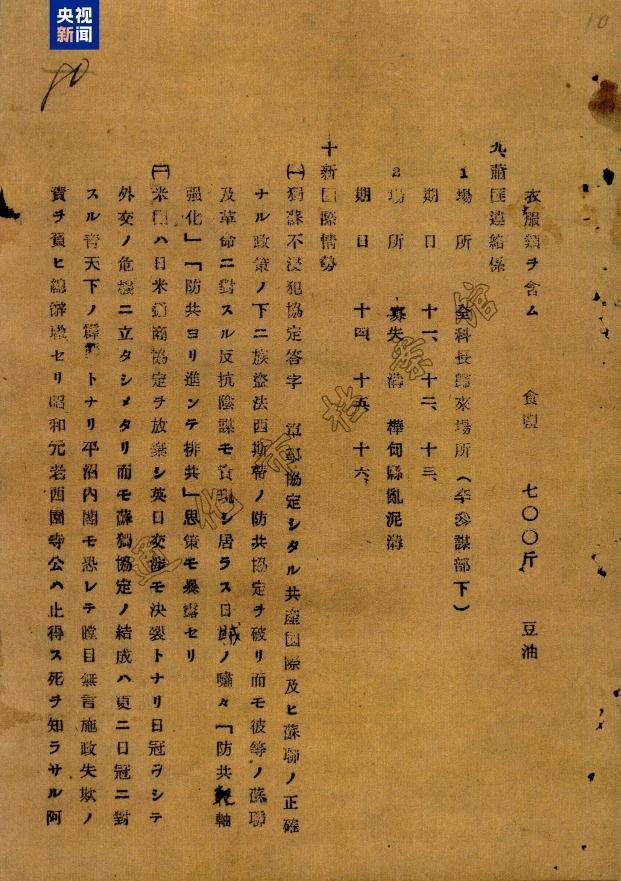 央视
新闻
10
衣服類ヲ含ム 食鹽 七〇〇斤 豆油
九、蕭匪連絡係
1 場所 金科長歸來場所(李參謀部下)
期日 十一、十二、十三、
2 場所 寡失溝 樺甸縣亂泥溝
期日 十四、十五、十六、
十、新國際情勢
㈠獨蘇不浸犯協定答字 協定シタル共産國際及ヒ蘇聯ノ正確
ナル政策ノ下ニ族盜法西斯蒂ノ防共協定ヲ破リ而モ彼等ノ蘇聯
及革命ニ對スル反抗陰謀モ實現シ居ラス日賊ノ嘯々「防共軸
强化」「防共ヨリ進ンテ排共」思策モ暴露セリ
㈡米國ハ日米通商協定ヲ放棄シ英日交渉モ決裂トナリ日冠ヲシテ
外交ノ危機ニ立タシメタリ而モ蘇獨協定ノ結成ハ更ニ日冠ニ對
スル青天下ノ霹靂トナリ平沼内閣モ恐レテ瞠目無言施政失欺ノ
責ヲ負ヒ總辭職セリ昭和元老西園寺公ハ止得ス死ヲ知ラサル阿
通化市档案馆